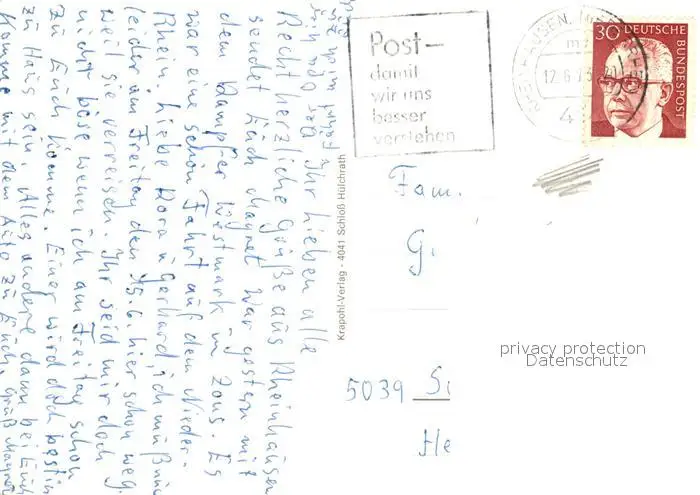 Ihr lieben alle
Recht herzliche Grüße aus Rheinhausen
sendet Euch Magret. War gestern mit
dem Dampfer Westmark in Zons. Es
war eine schön Fahrt auf dem Nieder-
Rhein. Liebe Rora u Gerhard, ich muß nun
leider am Freitag den 15.6. hier schon weg.
weil sie verreisen. Ihr seid mir doch
nicht böse wenn ich am Freitag schon
zu Euch komme. Einer wird doch bestim
zu Haus sein. Alles andere dann bei Euch
Komme mit dem Auto zu Euch. Gruß Magret
Krapohl-Verlag - 4041 Schloß Hülchrath
Post-
damit
wir uns
besser
verstehen
RHEINHAUSEN
12.6.73
4
30 DEUTSCHE
BUNDESPOST
Fam.
G.
5039 S
He
privacy protection
Datenschutz